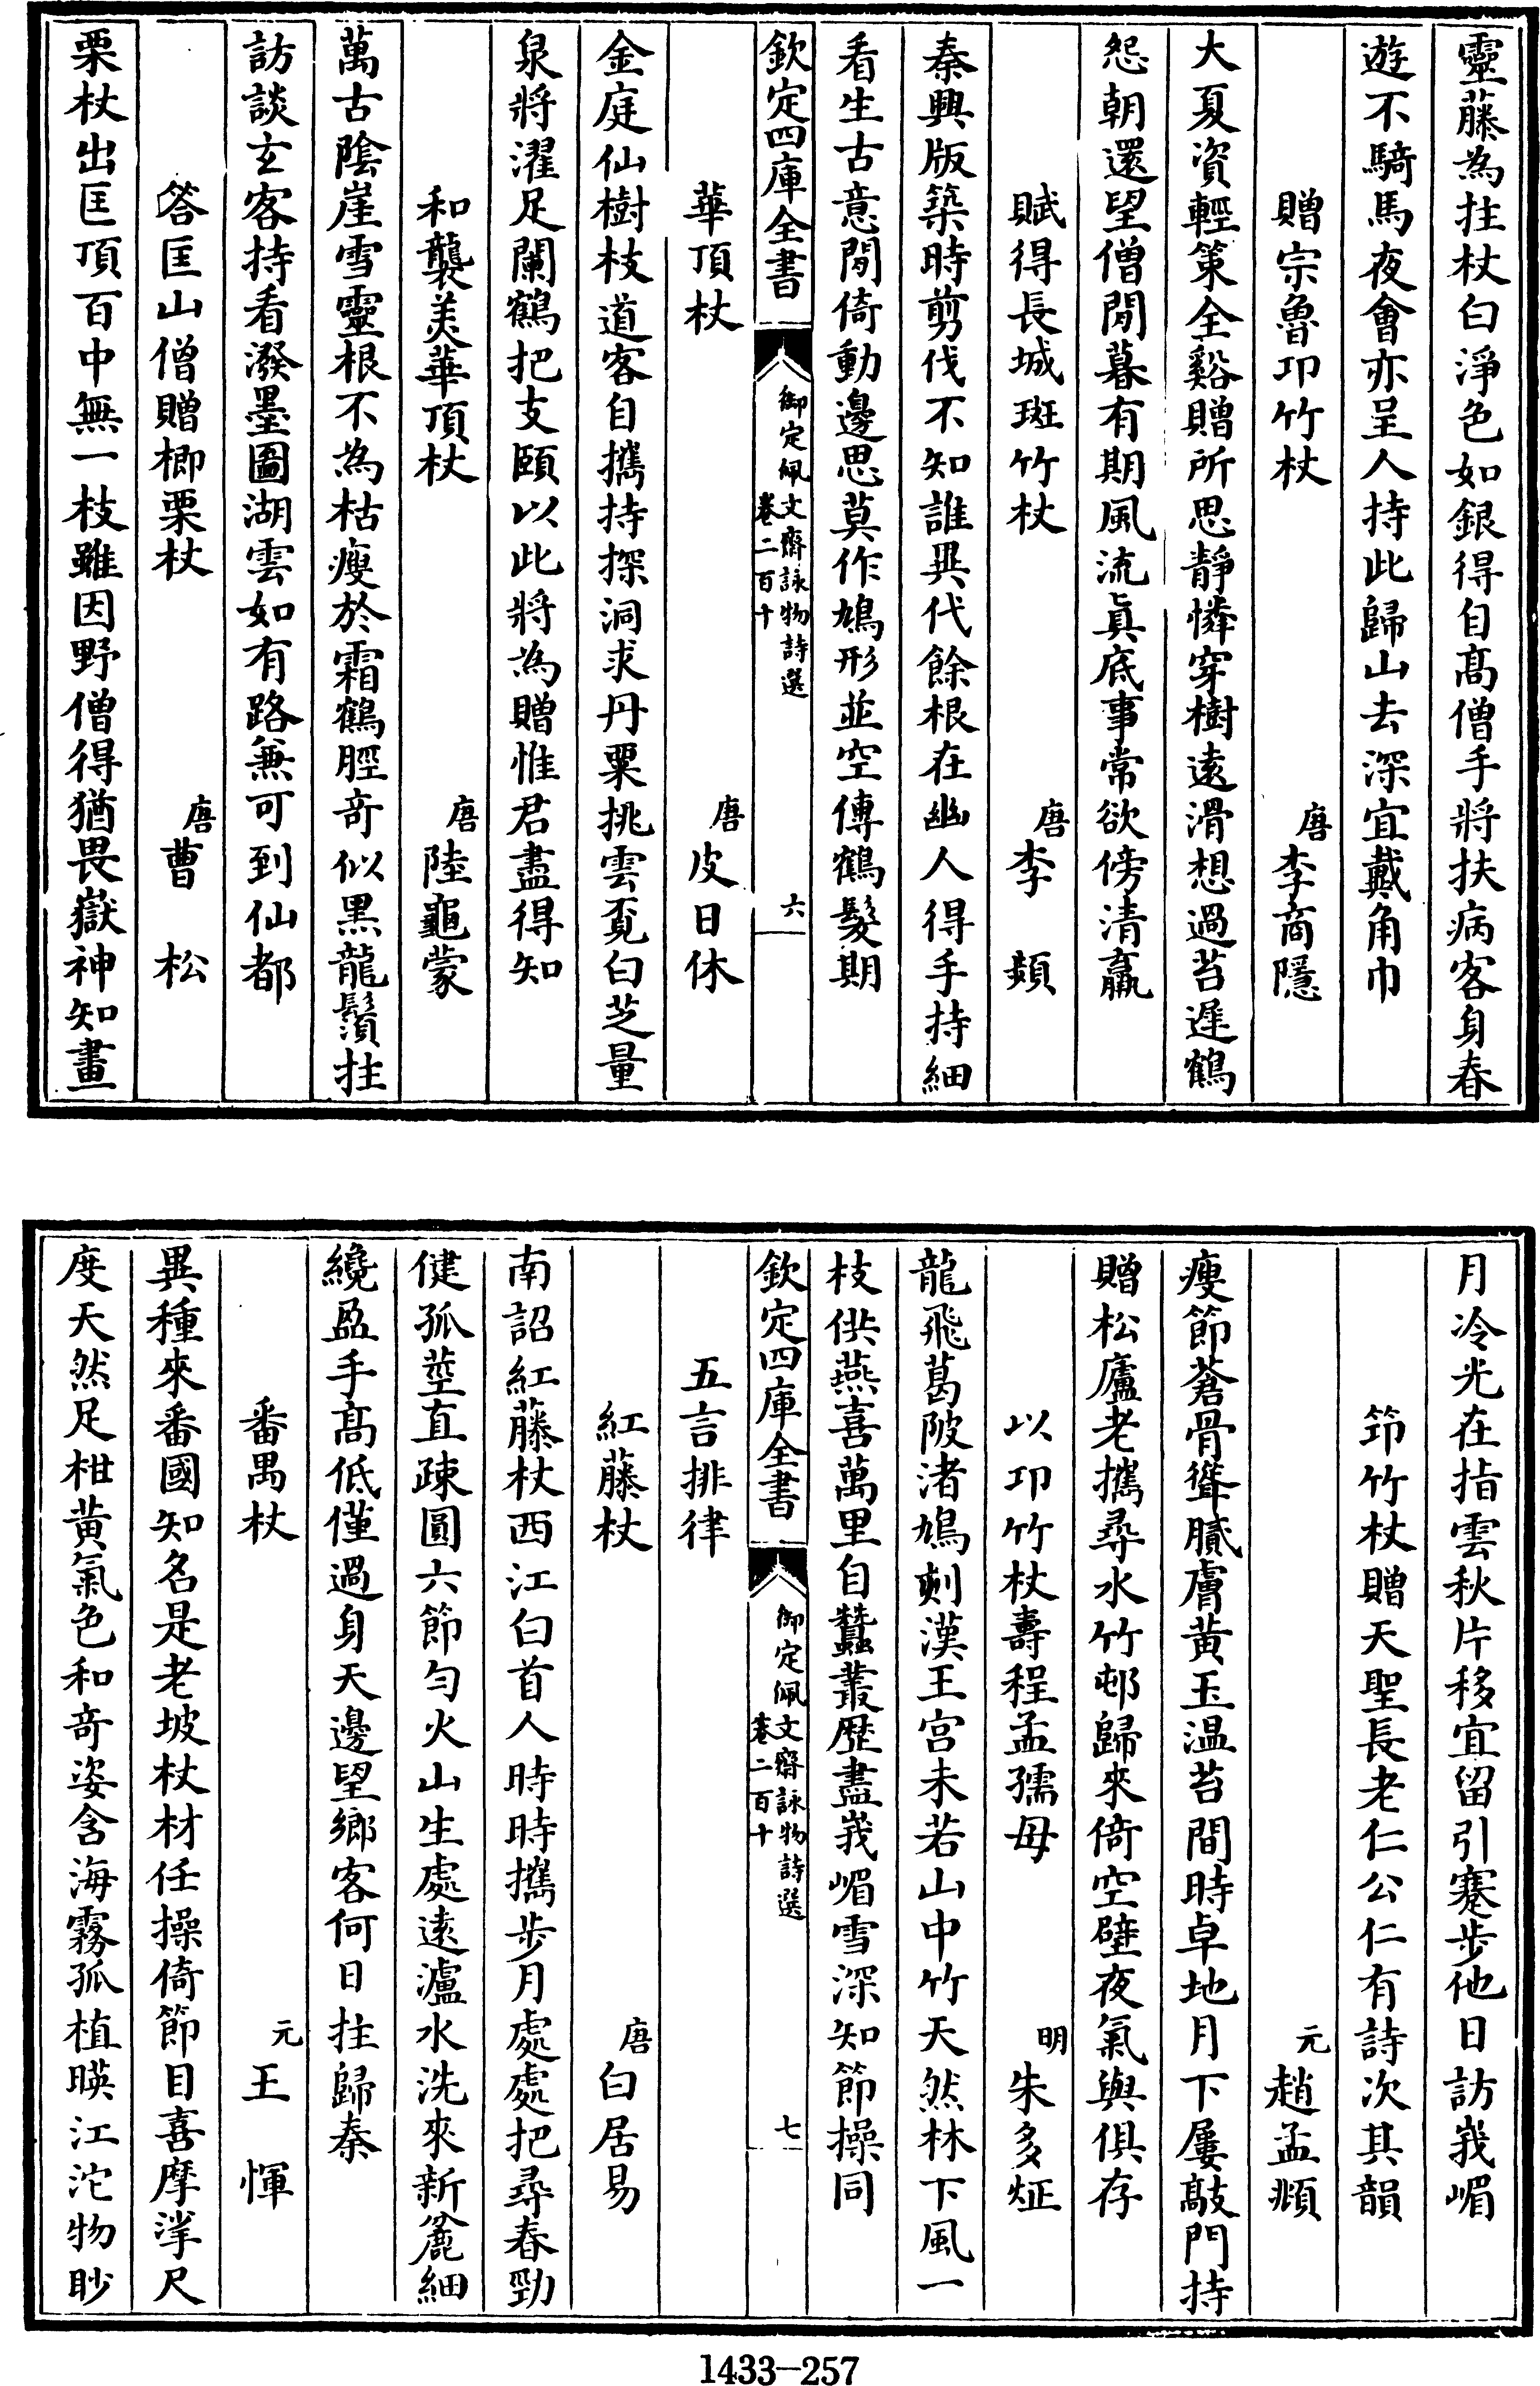 靈藤為拄杖白淨色如銀得自髙僧手將扶病客身春
遊不騎馬夜會亦呈人持此歸山去深宜戴角巾
贈宗魯卭竹杖 唐 李商隱
大夏資輕策全谿贈所思靜憐穿樹逺滑想過苔遲鶴
怨朝還望僧閒暮有期風流真底事常欲傍清羸
賦得長城斑竹杖 唐 李頻
秦興版築時剪伐不知誰異代餘根在幽人得手持細
看生古意閒倚動邊思莫作鳩形並空傳鶴髮期
欽定四庫全書 御定佩文齋詠物詩選 卷二百十 六
華頂杖 唐 皮日休
金庭仙樹枝道客自攜持探洞求丹粟挑雲覔白芝量
泉將濯足闌鶴把支頤以此將為贈惟君盡得知
和襲美華頂杖 唐 陸龜蒙
萬古陰崖雪靈根不為枯瘦於霜鶴脛奇似黒龍鬚拄
訪談玄客持看潑墨圖湖雲如有路兼可到仙都
答匡山僧贈櫛栗杖 唐 曹松
栗杖出匡頂百中無一枝雖因野僧得猶畏嶽神知畫
月冷光在指雲秋片移宜留引蹇步他日訪峩嵋
筇竹杖贈天聖長老仁公仁有詩次其韻
元 趙孟頫
瘦節蒼骨聳膩膚黃玉温苔間時卓地月下屢敲門持
贈松廬老攜尋水竹邨歸來倚空壁夜氣與俱存
以卭竹杖夀程孟孺母 明 朱多炡
龍飛葛陂渚鳩刻漢王宫未若山中竹天然林下風一
枝供燕喜萬里自蠶叢歴盡峩嵋雪深知節操同
欽定四庫全書 御定佩文齋詠物詩選 卷二百十 七
五言排律
紅藤杖 唐 白居易
南詔紅藤杖西江白首人時時攜步月處處把尋春勁
健孤莖直疎圓六節勻火山生處逺瀘水洗來新麄細
纔盈手髙低僅過身天邊望鄉客何日拄歸秦
番禺杖 元 王惲
異種來番國知名是老坡杖材任操倚節目喜摩挲尺
度天然足柑黃氣色和奇姿含海霧孤植暎江沱物眇
1433—257